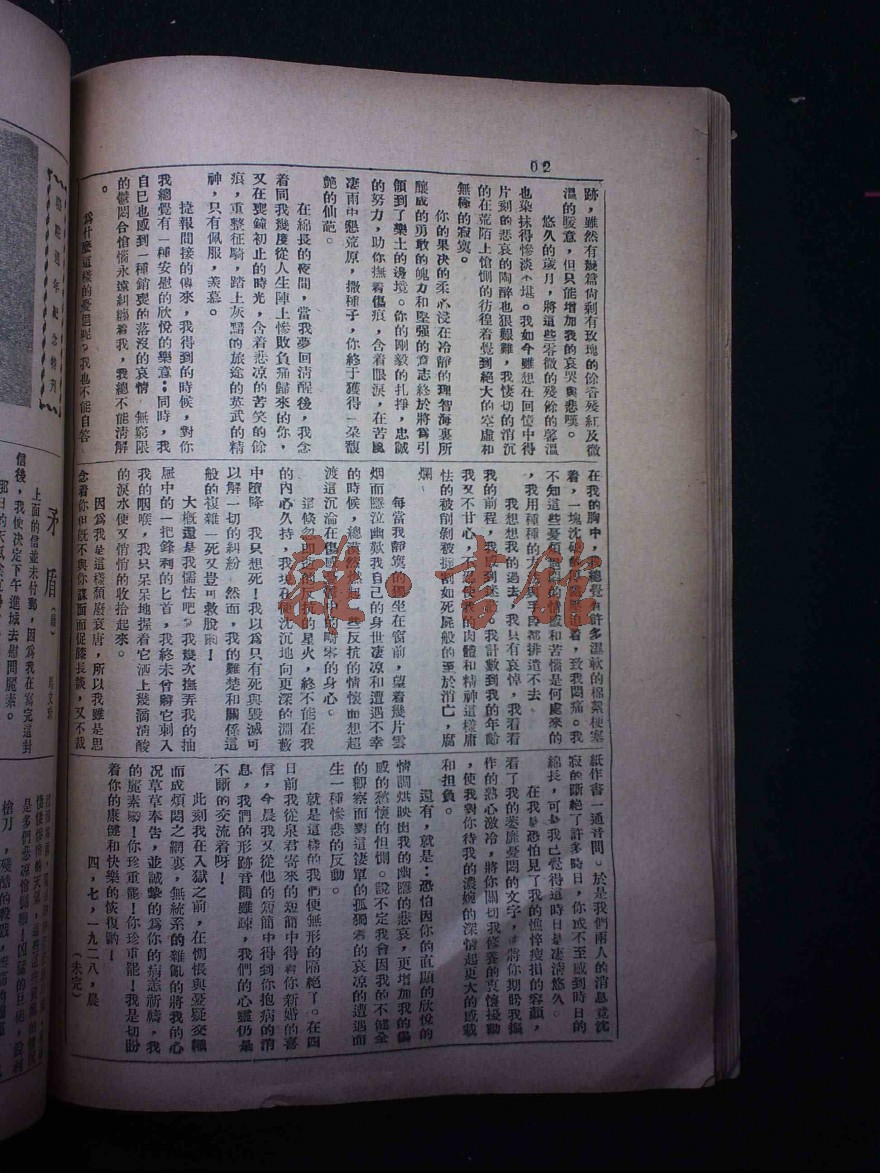 02
跡，雖然有幾篇尙剩有玫瑰的餘香殘紅及微
溫的暖意，但只能增加我的哀哭與悲嘆。
悠久的歲月，將這些零微的殘餘的馨溫
也染抹得慘淡不堪。我如今雖想在回憶中得
片刻的悲哀的陶醉也狠艱難，我悽切的消沉
的在荒陌上愴惻的彷徨着覺到絕大的空虛和
無極的寂寞。
你的果决的柔心浸在冷靜的理智海裏所
釀成的勇敢的魄力和堅强的意志終於將爲引
領到了樂土的邊境。你的剛毅的扎掙，忠誠
的努力，助你撫着傷痕，含着眼淚，在苦風
凄雨中懇荒原，撒種子，你終于獲得一朶馥
艶的仙葩。
在綿長的夜間，當我夢回清醒後，我念
着同我幾度從人生陣上慘敗負痛歸來的你，
又在喪鐘初止的時光，含着悲凉的苦笑的餘
痕，重整征騎，踏上灰黯的旅途的英武的精
神，只有佩服，羨慕。
捷報間接的傳來，我得到的時候，對你
我總覺有一種安慰的欣悅的樂意：同時，我
自已也感到一種銷喪的落沒的哀情 無窮限
的鬱悶合愴惱永遠糾纏着我，我總不能淸解
。
爲什麽這樣的憂悒呢？我也不能自答
在我的胸中，我總覺有許多濕軟的棉絮梗塞
着，一塊沈
壓迫着，致我悶痛。我
不知這些憂煩
的情感和苦惱是何處來的
，我用種種的方法
都排遣不去。
我想想我的過去，我只有哀悼，我看看
我的前程，我感到迷
我計數到我的年齡
我又不甘心，不忍使我的肉體和精神這樣庸
怯的被削剝被提割如死屍般的至於消亡，腐
爛
每當我靜寞的獨坐在窗前，望着幾片雲
烟而隱泣幽歎我自己的身世凄凉和遭遇不幸
的時候，總
些反抗的情懷而想超
渡這沉淪在傷感
中的
零的身心。
這倏忽卽
的反
的星火，終不能在我
的內心久持，我現在便沈沉地向更深的淵藪
中墮降 我只想死！我以爲只有死與毀滅可
以解一切的糾紛 然而，我的難楚和關係這
般的複雜一死又豈可救脫啊！
大槪還是我懦怯吧？我幾次撫弄我的抽
屜中的一把鋒利的匕首，我終未曾將它刺入
我的咽喉，我只呆呆地握着它洒上幾滴淸酸
的淚水便又悄悄的收拾起來。
因爲我是這樣頹廢哀唐，所以我雖是思
念着你但旣不與你謀面而促膝長談，又不裁
紙作書一通音問。於是我們兩人的消息竟沈
寂的斷絶了許多時日，你或不至感到時日的
綿長，可是我已覺得這時日是凄淸悠久。
在我是恐怕見了我的憔悴瘦損的容顏，
看了我的萎靡憂悶的文字，會將你期盼我振
作的熱心激冷，將你關切我修養的衷懷擾動
，使我對你待我的濃婉的深情起更大的感載
和担負。
還有，就是：恐怕因你的直顯的欣悅的
情調烘映出我的幽隱的悲哀，更增加我的傷
感的愁懷的怛惻。說不定我會因我的不健全
的觀察而對這淒單的孤獨者的哀凉的遭遇而
生一種慘悲的反動。
就是這樣的我們便無形的隔絶了。在四
日前我從泉君寄來的短簡中得着你新婚的喜
信，今晨我又從他的短簡中得到你抱病的消
息，我們的形跡音問雖疎，我們的心靈仍是
不斷的交流着呀！
此刻我在入獄之前，在惆悵與憂疑交織
而成煩悶之網裏，無統系的雜亂的將我的心
况草草奉告，並誠摯的爲你的病恙祈禱，我
的麗素喲！你珍重罷！你珍重罷！我是切盼
着你的康健和快樂的恢復喲！
四，七，一九二八，晨
（未完）
週年紀念特刊
矛盾
（續）
上面的信並未付郵，因爲我在寫完這封
信後，我便决定下午進城去慰問麗素。
那日的天氣
槍刀，殘酷的殺戮，
雜·古館